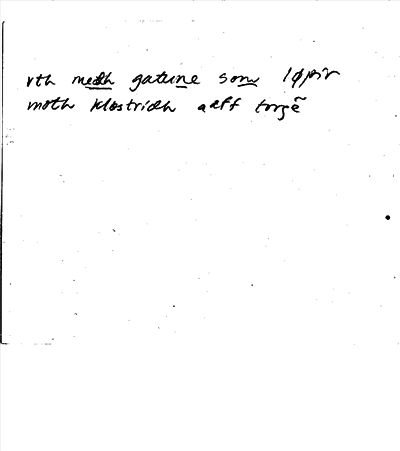 vth medh gatune som løpir
moth klostridh aff torgẽ